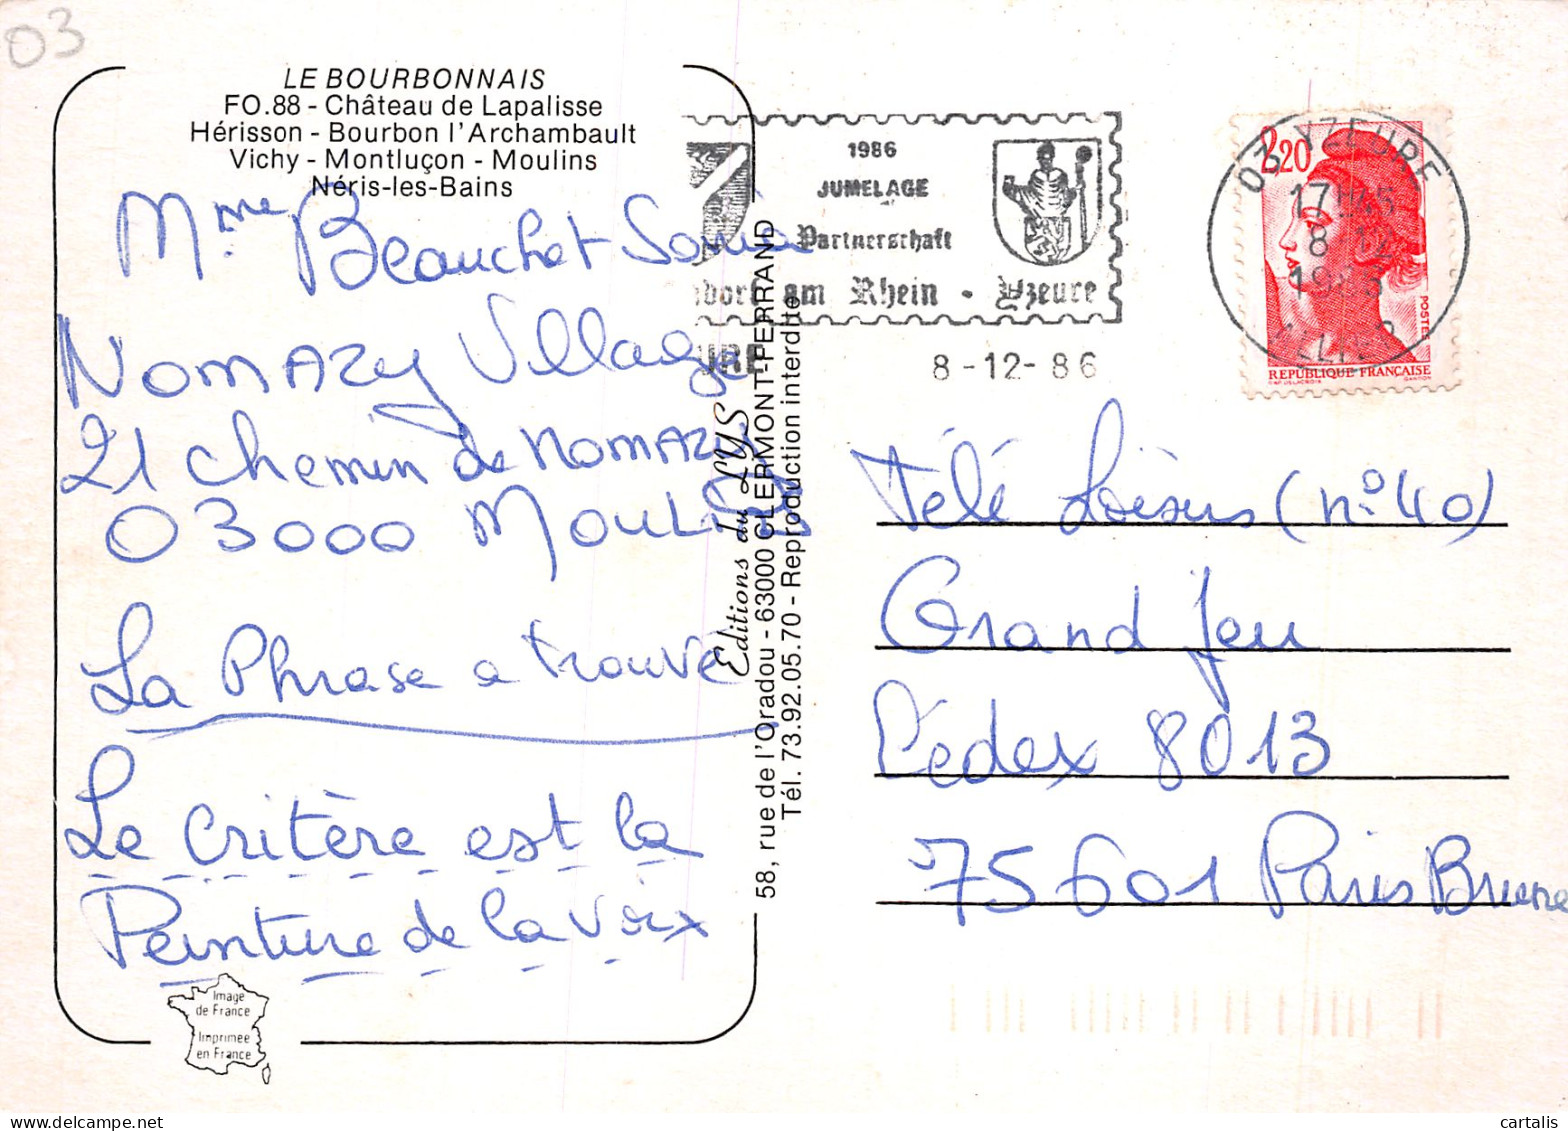 03
LE BOURBONNAIS
FO.88 - Château de Lapalisse
Hérisson - Bourbon l'Archambault
Vichy - Montluçon - Moulins
Néris-les-Bains
Mme Beauchet Sonia
Nomazy Village
21 chemin de Nomazy
03000 Moulins
La Phrase a trouvé
Le critère est la
Peinture de la voix
Image
de France
Imprimée
en France
Editions du LYS
58, rue de l'Oradou - 63000 CLERMONT-FERRAND
Tél. 73.92.05.70 - Reproduction interdite
1986
JUMELAGE
Partnerschaft
dorf am Rhein - Yzeure
URE
8-12-86
03 YZEURE
8-12
2,20
POSTES
REPUBLIQUE FRANÇAISE
Télé Loisirs (n° 40)
Grand Jeu
Cédex 8013
75601 Paris Brune
cartalis